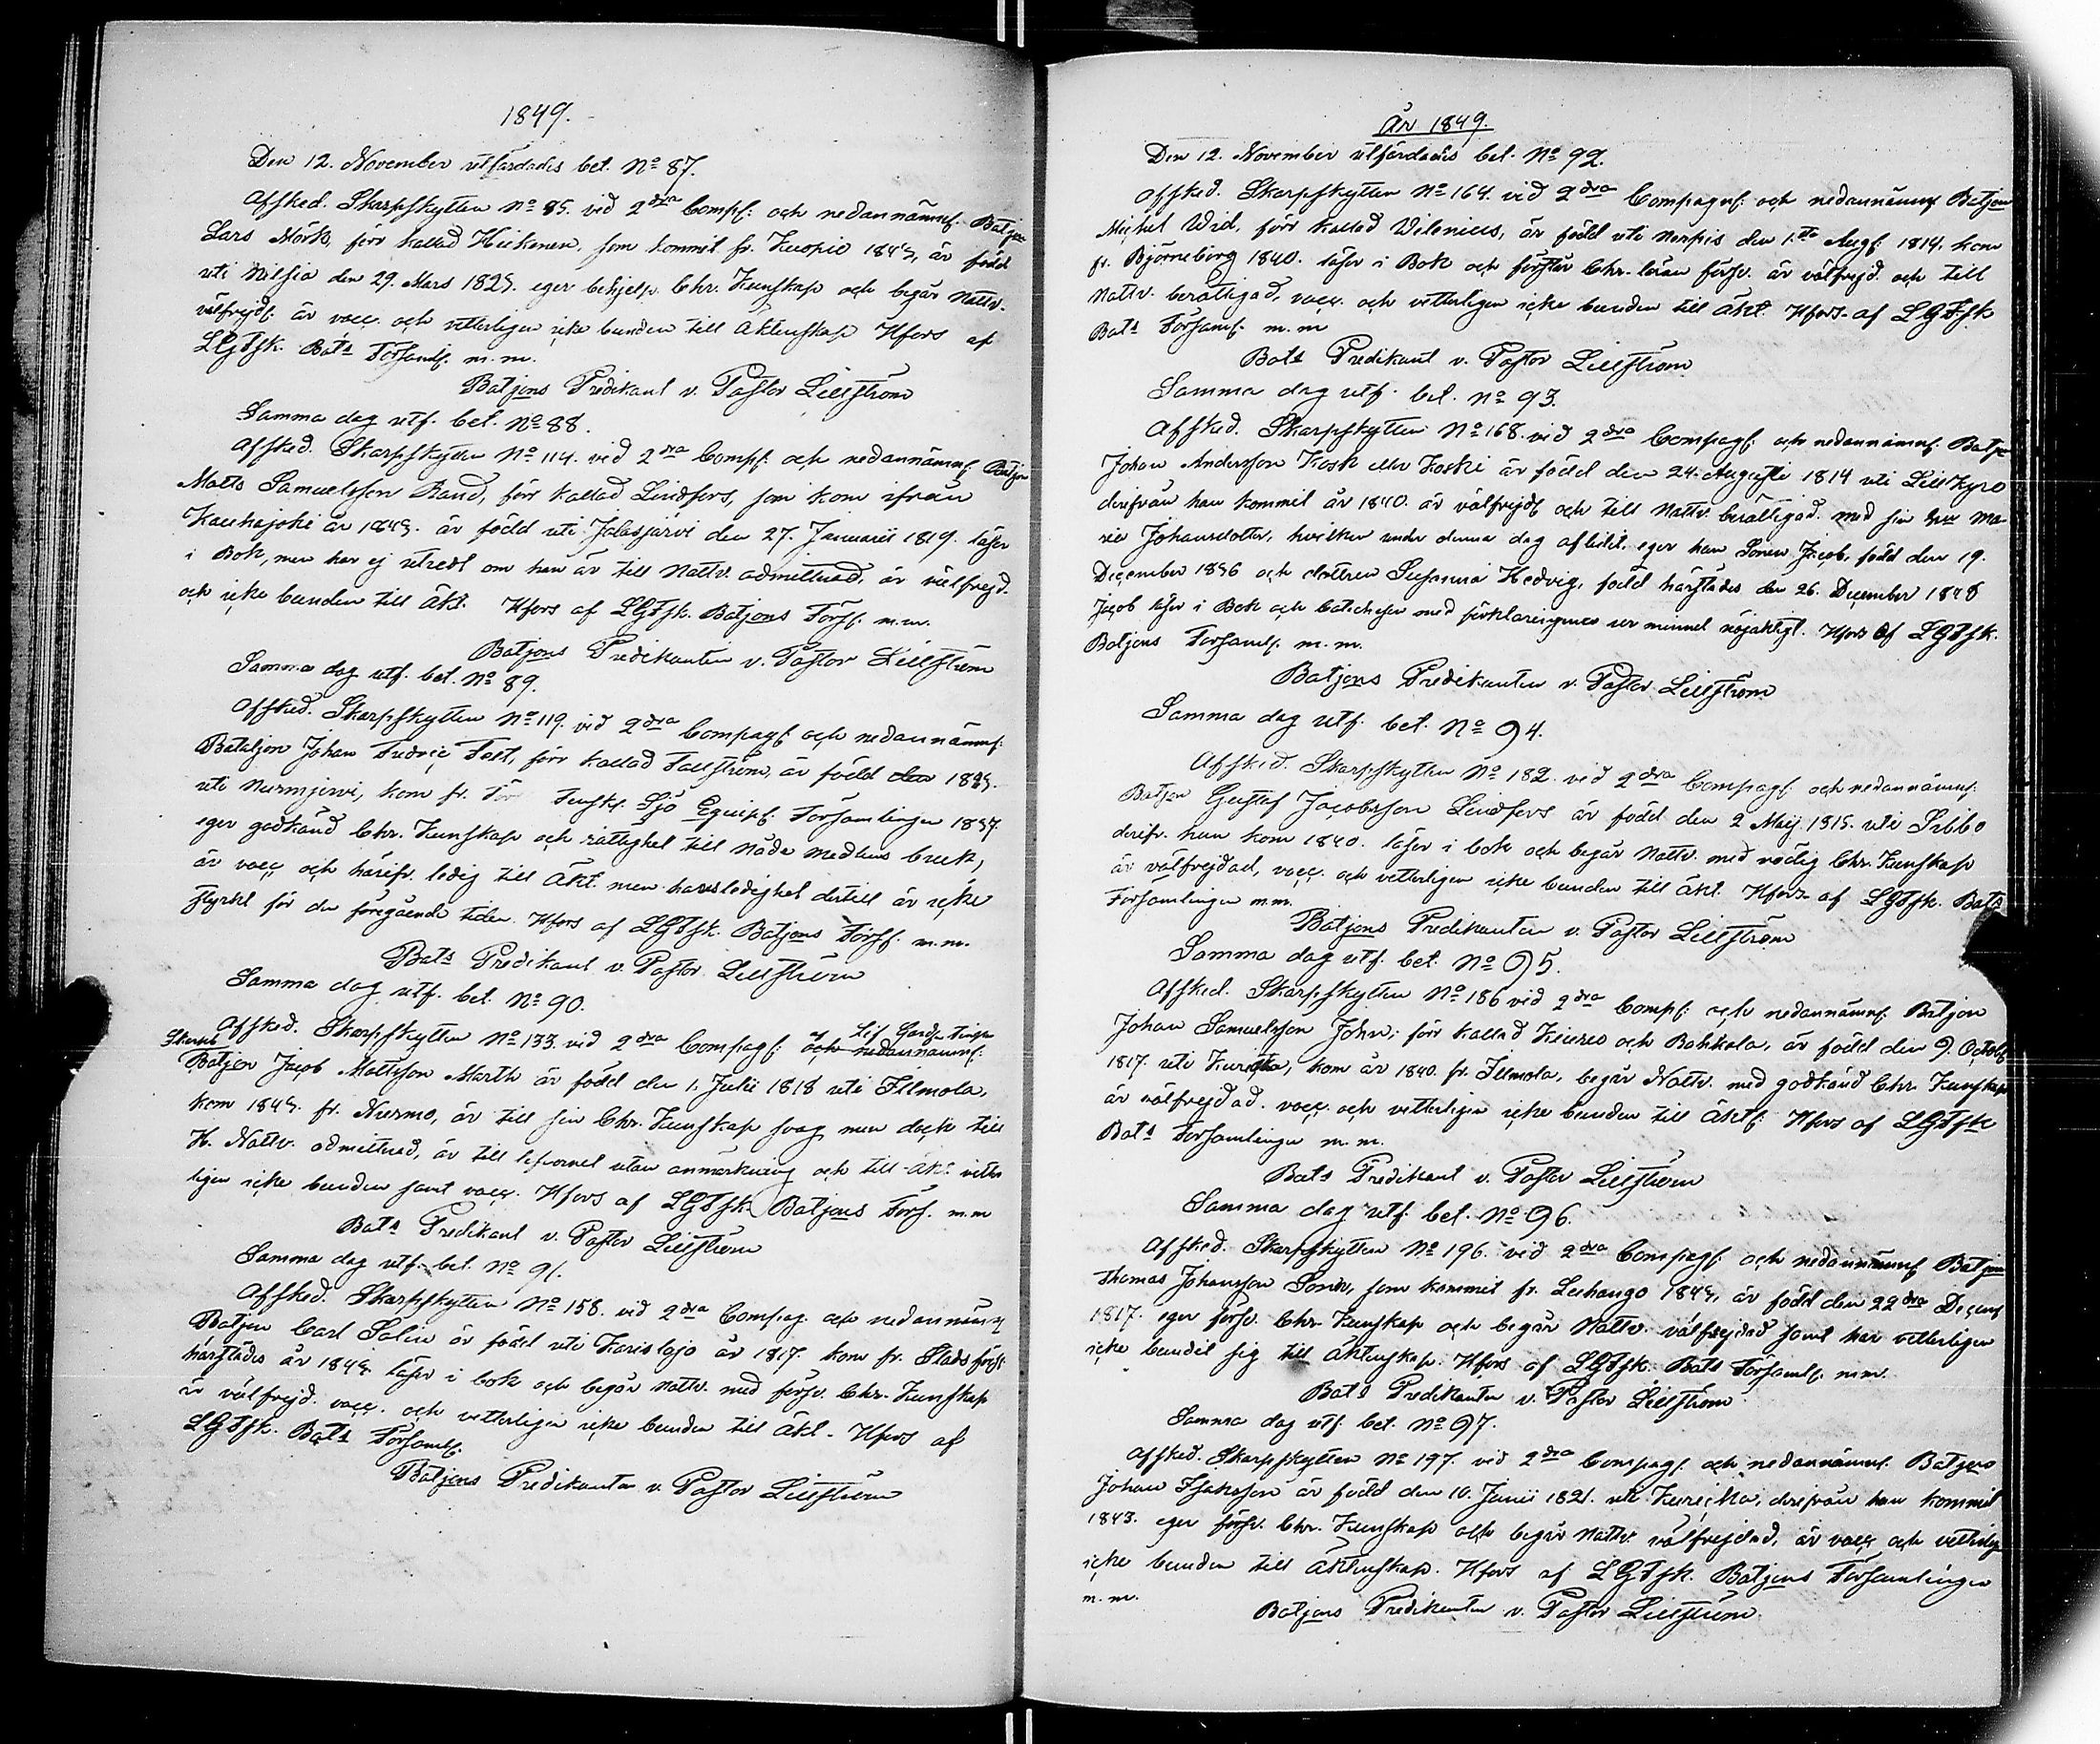 1849.
Den 12. November utfärdades bet. No 87.
Afsked. Skarpskytten No 85. vid 2dra Comps: och nedannämnf. Batjon
Lars Mörk, förr kallad Hiekanen, som kommit fr. Kuopio 1845, är född
uti Nilsiä den 29. Mars 1825. eger behjelp. Chr. Kunskap och begår Nattv.
välfrejd. är vacc. och vetterligen icke bunden till Äktenskap Hfors af
LGFsk. Bats Församlf. m.m.
Batjons Predikant v. Pastor Lillström
Samma dag utf. bet. No 88.
Afsked. Skarpskytten No 114. vid 2dra Compf: och nedannämnf. Batjon
Matts Samuelsson Rand, förr kallad Lindfors, som kom ifrån
Kauhajoki år 1845. är född uti Jalasjärvi den 27. Januarii 1819. läser
i Bok, men har ej utredt om han är till Nattv. admitterad, är välfrejd.
och icke bunden till Äkt. Hfors af LGFsk. Batjons Förs. m.m.
Batjons Predikanten v. Pastor Lillström
Samma dag utf. bet. No 89.
Afsked. Skarpskytten No 119. vid 2dra Compagf och nedannämnf:
Bataljon Johan Fredric Fast, förr kallad Fallström, är född den 1825.
uti Nurmijervi, kom fr. Finska Sjö Equipf: Församlingen 1837.
eger godkänd Chr. Kunskap och rättighet till Nåde medlens bruk,
är vacc och härifr. ledig till Äkt. men hans ledighet dertill är icke
styrkt för den föregående tiden. Hfors af LGFsk. Batjons Förs. m.m.
Bats Predikant v. Pastor Lillström
Samma dag utf. bet. No 90.
Afsked. Skarpskytten No 133. vid 2dra Compagf: af Lif Gardets Finska
och nedannämnf:
Skarpsk
Batjon Jacob Mattsson Marth är född den 1. Julii 1818 uti Ilmola,
kom 1845. fr. Nurmo, är till sin Chr. Kunskap svag men dock till
H. Nattv. admitterad, är till lefvernet utan anmärkning och till Äkt. vetter
ligen icke bunden samt vacc. Hfors af LGFsk Batjons Förs. m.m
Bats Predikant v. Pastor Lillström
Samma dag utf. bet. No 91.
Afsked. Skarpskytten No 158. vid 2dra Compag. och nedannämnf
Batjon Carl Salin är född uti Karislojo år 1817. kom fr. Stads förs:
härstädes år 1845 läser i bok och begår Nattv. med försv. Chr. Kunskap
är välfrejd. vacc. och vetterligen icke bunden till Äkt. Hfors af
LGFsk. Bats Församlf.
Batjons Predikanten v. Pastor Lillström
År 1849.
Den 12. November utfärdades bet. No 92.
Afsked. Skarpskytten No 164. vid 2dra Compagnf: och nedannämnf Batjon
Michel Wid, förr kallad Wilenius, är född uti Nerpis den 1.sta Augf. 1814. kom
fr. Björneborg 1840. läser i Bok och förstår Chr. läran försv. är välfrejd. och till
Nattv. berättigad, vacc. och vetterligen icke bunden till Äkt. Hfors af LGFsk
Bats Församf. m.m
Bats Predikant v. Pastor Lillström
Samma dag utf. bet. No 93.
Afsked. Skarpskytten No 168. vid 2dra Compagf: och nedannämnf. Batjon
Johan Andersson Kosk eller Koski är född den 24. Augusti 1814 uti Lillkyro
derifrån han kommit år 1840. är välfrejd och till Nattv. berättigad. med sin hu Ma-
ria Johansdotter, hvilken under denna dag aflidit. eger han Sonen Jacob, född den 19.
December 1836 och dottren Susanna Hedvig, född härstädes den 26. December 1848
Jacob läser i Bok och Catechesen med förklaringarne ur minnet nöjaktigt. Hfors af LGFsk.
Batjons Församlf. m.m.
Batjons Predikanten v. Pastor Lillström
Samma dag utf. bet. No 94.
Afsked. Skarpskytten No 182. vid 2dra Compagf: och nedannämnf:
Batjon Gustaf Jacobsson Lindfors är född den 2 Maij 1815. uti Sibbo
derifr. han kom 1840. läser i bok och begår Nattv. med nödig Chr. Kunskap
är välfrejdad, vacc. och vetterligen icke bunden till Äkt. Hfors af LGFsk. Bats
Församlingen m.m.
Batjons Predikanten v. Pastor Lillström
Samma dag utf. bet. No 95.
Afsked. Skarpskytten No 186 vid 2dra Compf: och nedannämnf. Batjon
Johan Samuelsson John; förr kallad Keiures och Bahkala, är född den 9. Octob
1817. uti Kurikka, kom år 1840. fr. Ilmola, begår Nattv. med godkänd Chr. Kunskap
är välfrejdad. vacc. och vetterligen icke bunden till Äktf: Hfors af LGFsk
Bats Församlingen m.m.
Bats Predikant v. Pastor Lillström
Samma dag utf. bet. No 96.
Afsked. Skarpskytten No 196. vid 2dra Compagf: och nedannämnf Batjon
Thomas Johansson Sorin, som kommit fr. Leuhango 1845, är född den 22dra Decemf
1817. eger försv. Chr. Kunskap och begår Nattv. välfrejdad samt har vetterligen
icke bundit sig till Äktenskap. Hfors af LGFsk. Bats Församlf. m.m.
Bats Predikanten v. Pastor Lillström
Samma dag utf. bet. No 97.
Afsked. Skarpskytten No 197. vid 2dra Compagf. och nedannämnf. Batjons
Johan Isaksson är född den 10. Junii 1821. uti Kurikka, derifrån han kommit
1843. eger försv. Chr. Kunskap och begår Nattv. välfrejdad, är vacc och vetterlig
icke bunden till Äktenskap. Hfors af LGFsk. Batjons Församlingen
m.m.
Batjons Predikanten v. Pastor Lillström